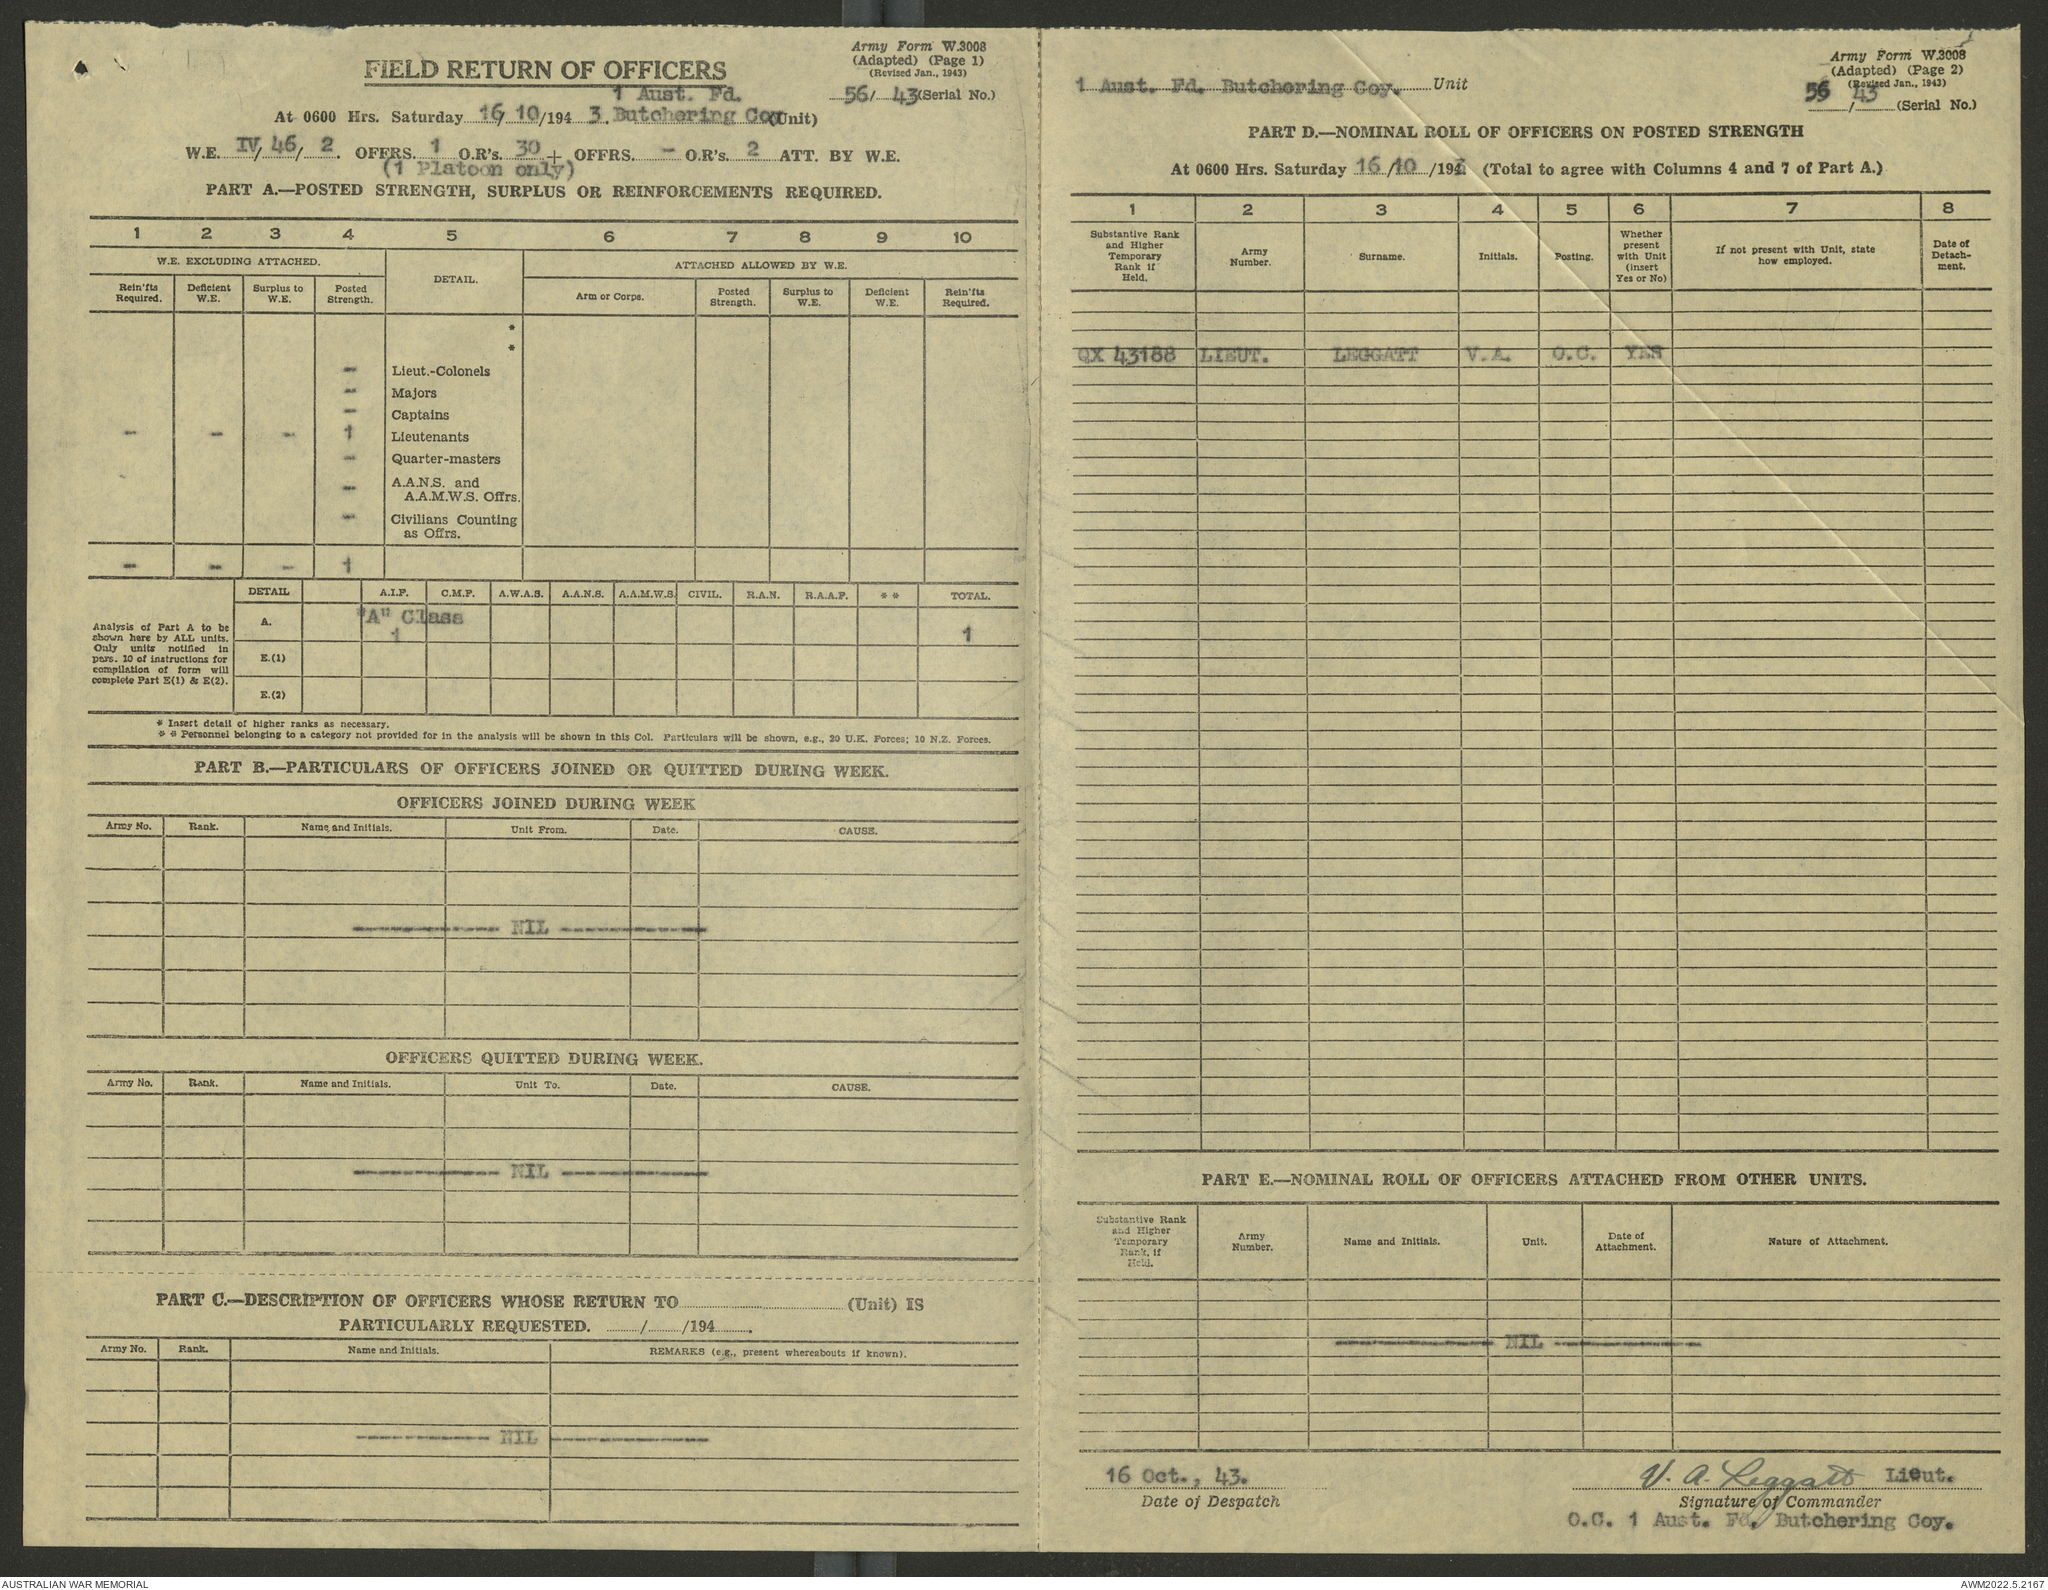 Army Form W.3008
(Adapted) (Page 1)
(Revised Jan., 1943)
FIELD RETURN OF OFFICERS
1 Aust. Fd.
56/ 43 (Serial No.)
At 0600 Hrs. Saturday 16/10/1943. Butchering Coy (Unit)
W.E. IV/46/2. OFFRS. 1 O.R's. 30 + OFFRS. - O.R's. 2 ATT. BY W.E.
(1 Platoon only)
PART A.—POSTED STRENGTH, SURPLUS OR REINFORCEMENTS REQUIRED.
1 2 3 4 5 6 7 8 9 10
W.E. EXCLUDING ATTACHED. DETAIL. ATTACHED ALLOWED BY W.E.
Rein'fts Required. Deficient W.E. Surplus to W.E. Posted Strength. Arm or Corps. Posted Strength. Surplus to W.E. Deficient W.E. Rein'fts Required.
*
*
- Lieut.-Colonels
- Majors
- Captains
- - - 1 Lieutenants
- Quarter-masters
- A.A.N.S. and
A.A.M.W.S. Offrs.
- Civilians Counting
as Offrs.
- - - 1
DETAIL A.I.F. C.M.F. A.W.A.S. A.A.N.S. A.A.M.W.S. CIVIL. R.A.N. R.A.A.F. * * TOTAL.
Analysis of Part A to be
shown here by ALL units.
Only units notified in
para. 10 of instructions for
compilation of form will
complete Part E(1) & E(2).
A. "A" Class
1 1
E.(1)
E.(2)
* Insert detail of higher ranks as necessary.
* * Personnel belonging to a category not provided for in the analysis will be shown in this Col. Particulars will be shown, e.g., 20 U.K. Forces; 10 N.Z. Forces.
PART B.—PARTICULARS OF OFFICERS JOINED OR QUITTED DURING WEEK.
OFFICERS JOINED DURING WEEK
Army No. Rank. Name and Initials. Unit From. Date. CAUSE.
---------- NIL ----------
OFFICERS QUITTED DURING WEEK.
Army No. Rank. Name and Initials. Unit To. Date. CAUSE.
---------- NIL ----------
PART C.—DESCRIPTION OF OFFICERS WHOSE RETURN TO (Unit) IS
PARTICULARLY REQUESTED. / /194 .
Army No. Rank. Name and Initials. REMARKS (e.g., present whereabouts if known).
---------- NIL ----------
Army Form W.3008
(Adapted) (Page 2)
(Revised Jan., 1943)
1 Aust. Fd. Butchering Coy. Unit
56 / 43 (Serial No.)
PART D.—NOMINAL ROLL OF OFFICERS ON POSTED STRENGTH
At 0600 Hrs. Saturday 16/10/1943 (Total to agree with Columns 4 and 7 of Part A.)
1 2 3 4 5 6 7 8
Substantive Rank and Higher Temporary Rank if Held. Army Number. Surname. Initials. Posting. Whether present with Unit (insert Yes or No) If not present with Unit, state how employed. Date of Detachment.
QX 43188 LIEUT. LEGGATT V.A. O.C. YES
PART E.—NOMINAL ROLL OF OFFICERS ATTACHED FROM OTHER UNITS.
Substantive Rank and Higher Temporary Rank, if Held. Army Number. Name and Initials. Unit. Date of Attachment. Nature of Attachment.
---------- NIL ----------
16 Oct., 43.
Date of Despatch
V. A. Leggatt Lieut.
Signature of Commander
O.C. 1 Aust. Fd. Butchering Coy.
AUSTRALIAN WAR MEMORIAL
AWM2022.5.2167